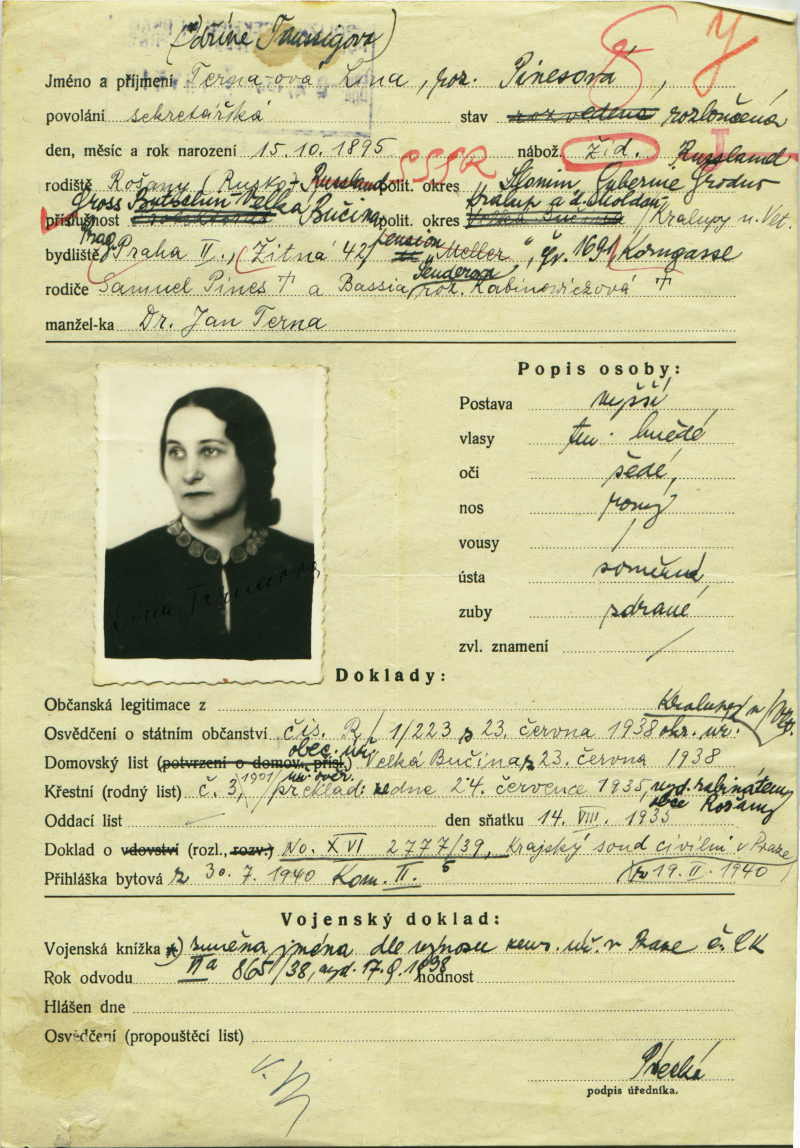 (Dříve Taussigova)
Jméno a příjmení Terna-ová Lina, roz. Pinesová,
povolání sekretářka stav rozvedena rozloučená
den, měsíc a rok narození 15.10.1895 nábož. žid. Russland
ČSSR
rodiště Rošany (Rusko) Russland polit. okres Slonim, Gubernie Grodno
Gross Butschin Kralup a.d. Moldau
příslušnost Velká Bučina polit. okres Velká Bučina / Kralupy n. Vlt.
Prag pension
bydliště Praha II., Žitná 42/ "Meller", čp. 1691 Korngasse
rodiče Samuel Pines † a Bassia roz. Rabinowiczová †
manžel-ka Dr. Jan Terna
Popis osoby:
Postava vyšší
vlasy tm. hnědé
oči šedé,
nos rovný
vousy /
ústa souměrná
zuby zdravé
zvl. znamení /
Lina Ternova
Doklady:
Občanská legitimace z Kralupy n/Vlt.
Osvědčení o státním občanství čís. R/1/223 z 23. června 1938 okr. úř.
obec. úř.
Domovský list (potvrzení o domov. přísl.) Velká Bučina z 23. června 1938
Křestní (rodný list) č. 3, 1901/ překlad: ze dne 24. července 1935, vyd. rabinátem
obce Rošany
Oddací list den sňatku 14. VIII. 1935
Doklad o vdovství (rozl., rozv.) No. XVI 2777/39, Krajský soud civilní v Praze
Přihláška bytová z 30. 7. 1940 Kom. II. 19. II. 1940
Vojenský doklad:
Vojenská knížka *) změna jména dle výnosu zems. úř. v Praze č.
Rok odvodu IIa 865/38, vyd. 17.9.1938 hodnost
Hlášen dne
Osvědčení (propouštěcí list)
podpis úředníka.